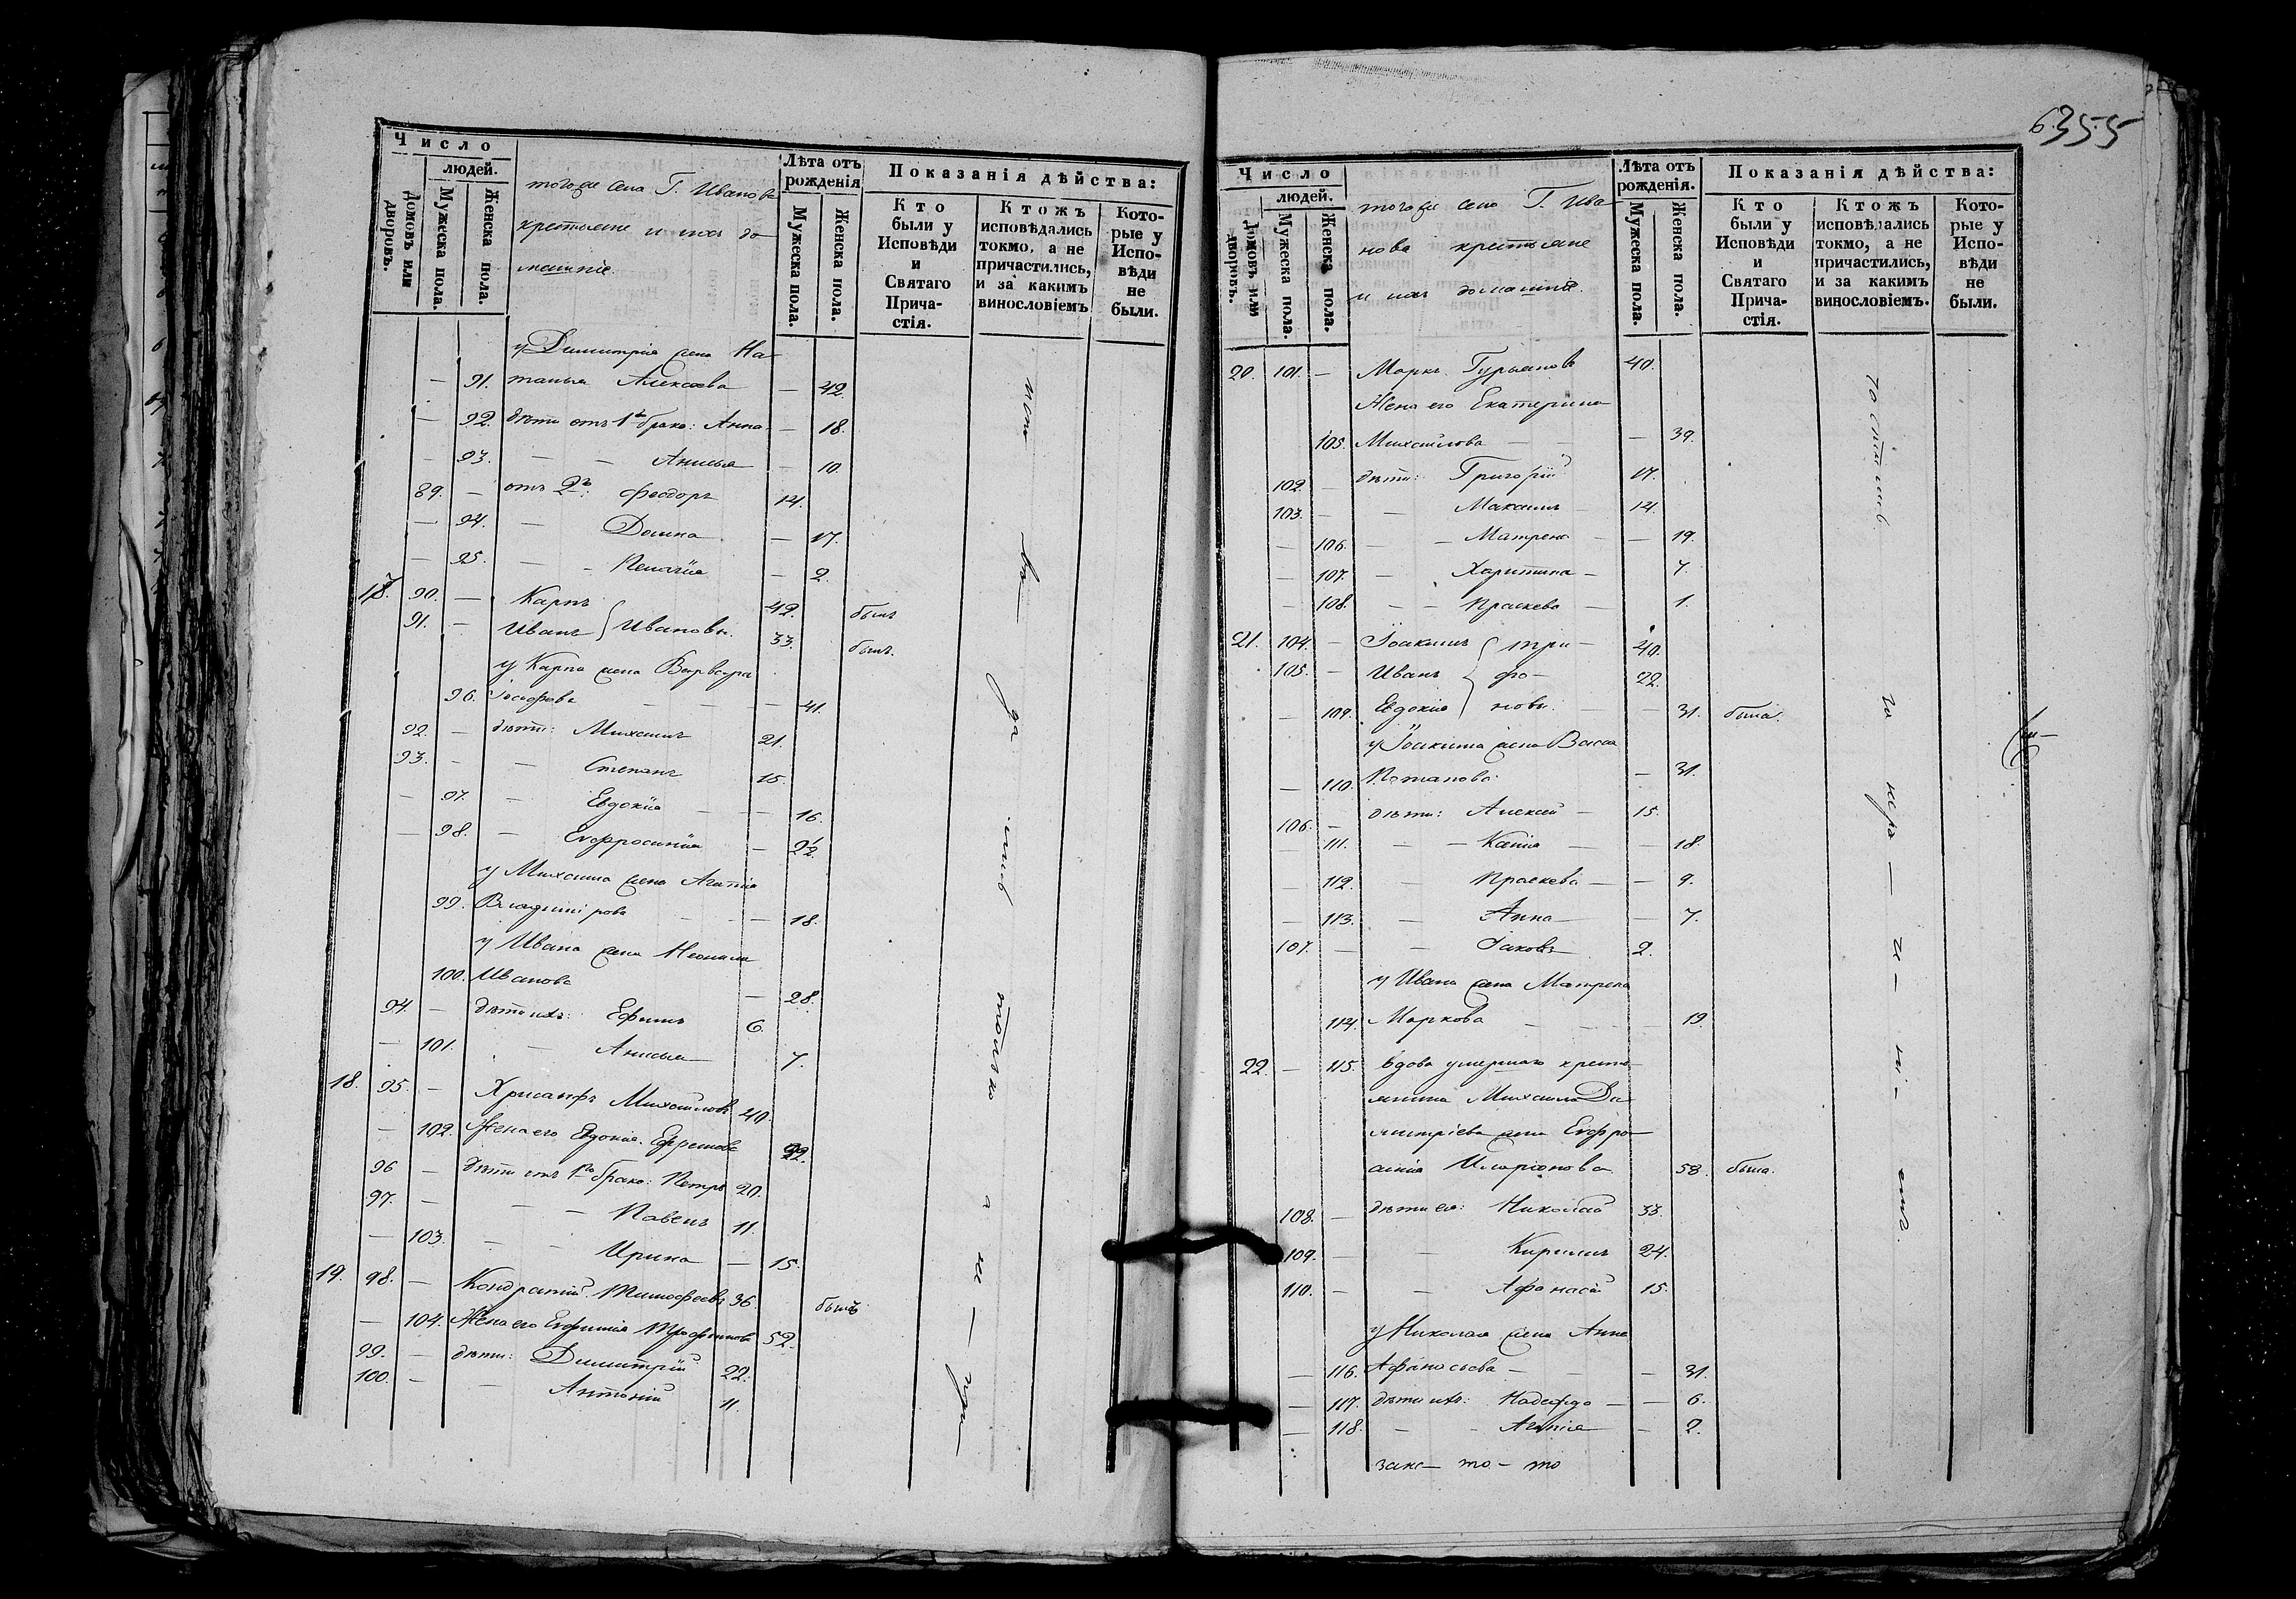 Число
людей.
Домовъ или дворовъ.
Мужеска пола.
Женска пола.
тогоже села Г. Иванова
крестьяне и ихъ до-
машніе.
Лѣта отъ рожденія
Мужеска пола.
Женска пола.
Показанія дѣйства:
Кто были у Исповѣди и Святаго Прича-стія.
Ктожъ исповѣдались токмо, а не причастились, и за какимъ винословіемъ
Кото-рые у Испо-вѣди не были.
у Димитрія жена На-
— 91. талья Алексѣева — 42.
— 92. дѣти отъ 1го брака: Анна — 18.
— 93. — — Анисья — 10.
89. — отъ 2го: Феодоръ 14.
— 94. — Домна — 17.
— 95. — — Пелагія — 2.
17. 90. — Карпъ 42. былъ
91. — Иванъ } Ивановы. 33. былъ.
у Карпа жена Варвара
96. Іосифова — — — 41.
92. — дѣти: Михаилъ 21.
93. — — Степанъ 15.
— 97. — Евдокія — — 16.
— 98. — Евфросинія — 12.
у Михаила жена Агапія
99. Владимірова — — — 18.
у Ивана жена Неонила
100. Иванова — 28.
94. — дѣти ихъ: Ефимъ 6.
— 101. — Анисья — 7.
18. 95. — Хрисанфъ Михайловъ 40.
— 102. Жена его Евдокія Ефремова 22.
96 — дѣти отъ 1го брака: Петръ 20.
97. — — — Павелъ 11.
— 103. — — Ирина — 15.
19. 98. — Кондратій Тимофеевъ 36. былъ
— 104. Жена его Евфимія Трофимова 52.
99. — дѣти: Димитрій 22.
100. — — Антоній 11.
да
только
а не при-
6355
Число
людей.
Домовъ или дворовъ.
Мужеска пола.
Женска пола.
тогоже села Г. Ива-
нова крестьяне
и ихъ домашніе.
Лѣта отъ рожденія.
Мужеска пола.
Женска пола.
Показанія дѣйства:
Кто были у Исповѣди и Святаго Прича-стія.
Ктожъ исповѣдались токмо, а не причастились, и за какимъ винословіемъ.
Кото-рые у Испо-вѣди не были.
20. 101. — Маркъ Гурьяновъ 40.
Жена его Екатерина
105. Михайлова — — — 39.
102. — дѣти: Григорій 17.
103. — — Максимъ — 14.
— 106. — — Матрена — — 19.
— 107. — Харитина — 7.
— 108. — — Праскева — 1.
21. 104. — Іоакимъ } Три- 40.
105. — Иванъ } фо- 22.
— 109. Евдокія } новы. — — 31. была.
у Іоакима жена Васса
— 110. Потапова — 31.
106. — дѣти: Алексѣй — 15.
— 111. — — Ксенія — — 18.
— 112. — Праскева — — 9.
— 113. — Анна — — 7.
107. — — Іаковъ 2.
у Ивана жена Матрена
114. Маркова — — — 19.
22. — 115. вдова умершаго кресть-
янина Михаила Ди-
митріева жена Евфро-
синія Иларіонова 58. была.
108. — дѣти ея: Николай 33.
109. — — Кирилъ 24.
110. — — Афанасій 15.
у Николая жена Анна
— 116. Афанасьева — — 31.
— 117. дѣти ихъ: Надежда — — 6.
— 118. — — Агапія — 2.